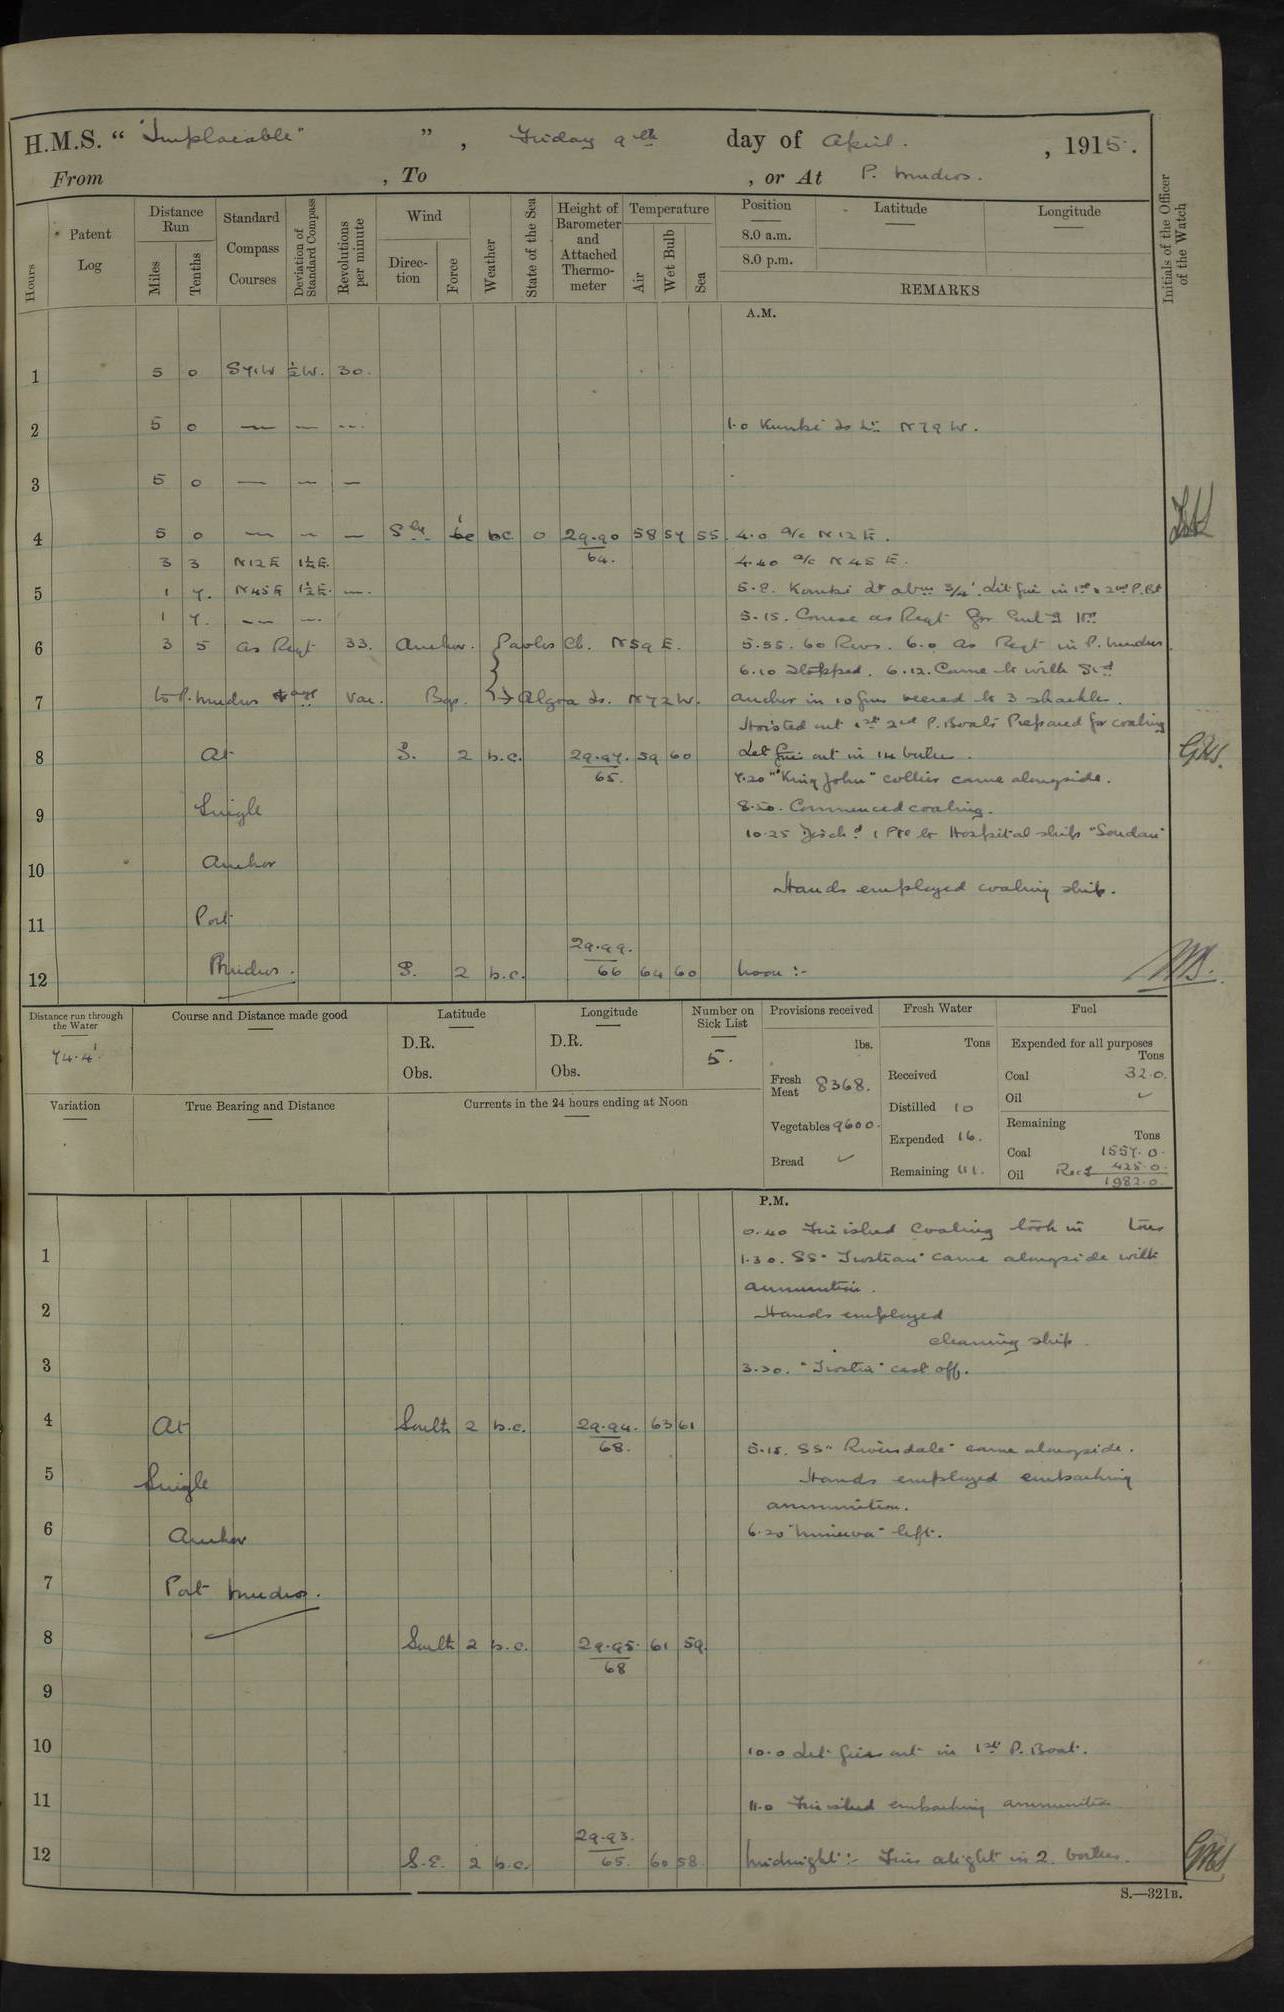 H.M.S. “ "Implacable" ” , Friday 9th day of April. , 1915.
From , To , or At P. Mudros.
Hours
Patent Log
Distance Run
Miles
Tenths
Standard Compass Courses
Deviation of Standard Compass
Revolutions per minute
Wind
Direction
Force
Weather
State of the Sea
Height of Barometer and Attached Thermometer
Temperature
Air
Wet Bulb
Sea
Position
8.0 a.m.
8.0 p.m.
Latitude
Longitude
REMARKS
Initials of the Officer of the Watch
A.M.
1 5 0 S 71 W ½ W. 30.
2 5 0 — — — 1.0 Kumbi Is Lt N 79 W.
3 5 0 — — —
4 5 0 — — — Sly 1 bc 0 29.90 58 57 55 4.0 a/c N 12 E.
3 3 N12E 1½E. 64. 4.40 a/c N 45 E.
5 1 7. N45E 1½E. — 5.8. Kombi Lt abm 3/4'. Lit fire in 1st & 2nd P. Bt
1 7. — — 5.15. Course as Reqt for
6 3 5 as Reqt 33. Anchor. Pavlos Ch. N 59 E. 5.55. 60 Revs. 6.0 As Reqt in P. Mudros
6.10 Stopped. 6.12. Came to with Stbd
7 to P. Mudros Var. Bgs. Algoa Is. N 72 W. anchor in 10 fms veered to 3 shackles.
Hoisted out 1st 2nd P. Boats Prepared for coaling
8 At S. 2 b.c. 29.97. 59 60 Let fires out in 14 boilers.
65. 7.20 "King John" collier came alongside.
9 Single 8.50. Commenced coaling.
10.25 Disch'd 1 Pte to Hospital ship "Soudan"
10 Anchor
Hands employed coaling ship.
11 Port
29.99.
12 Mudros. S. 2 b.c. 66 64 60 Noon :-
Distance run through the Water
74.4'.
Course and Distance made good
Latitude
D.R.
Obs.
Longitude
D.R.
Obs.
Number on Sick List
5.
Provisions received
lbs.
Fresh Meat 8368.
Vegetables 9600.
Bread ✓
Fresh Water
Tons
Received
Distilled 10
Expended 16.
Remaining 111.
Fuel
Expended for all purposes
Tons
Coal 32.0.
Oil ✓
Remaining
Tons
Coal 1557.0.
Oil Recd 425.0.
1982.0.
Variation
True Bearing and Distance
Currents in the 24 hours ending at Noon
P.M.
0.40 Finished Coaling took in tons
1 1.30. SS "Frostian" came alongside with
ammunition.
2 Hands employed
cleaning ship
3 3.30. cast off.
4 At South 2 b.c. 29.94. 63 61
68. 5.15. SS "Riversdale" came alongside.
5 Single Hands employed embarking
ammunition.
6 Anchor 6.20 "Minerva" left.
7 Port Mudros.
8 South 2 b.c. 29.95. 61 59.
68
9
10 10.0 Let fires out in 1st P. Boat.
11 11.0 Finished embarking ammunition
29.93.
12 S.E. 2 b.c. 65. 60 58. Midnight :- Fires alight in 2 boilers.
S.—321B.